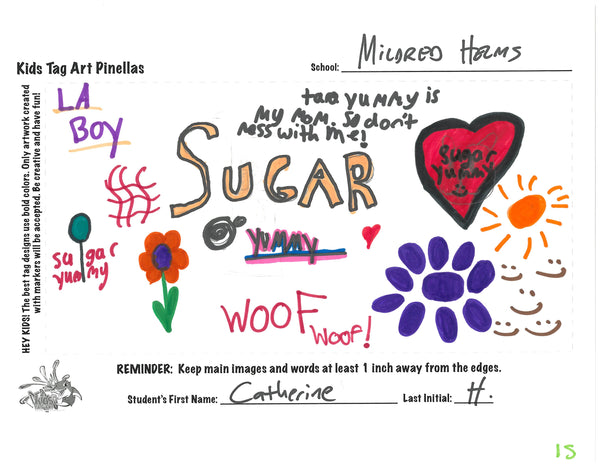 Kids Tag Art Pinellas
School: MILDRED HELMS
HEY KIDS! The best tag designs use bold colors. Only artwork created
with markers will be accepted. Be creative and have fun!
LA
Boy
tara yummy is
My MOM. So don't
mess with me!
SUGAR
sugar
yummy
sugar
yummy
YUMMY
WOOF
Woof!
REMINDER: Keep main images and words at least 1 inch away from the edges.
Student's First Name: Catherine Last Initial: H.
15